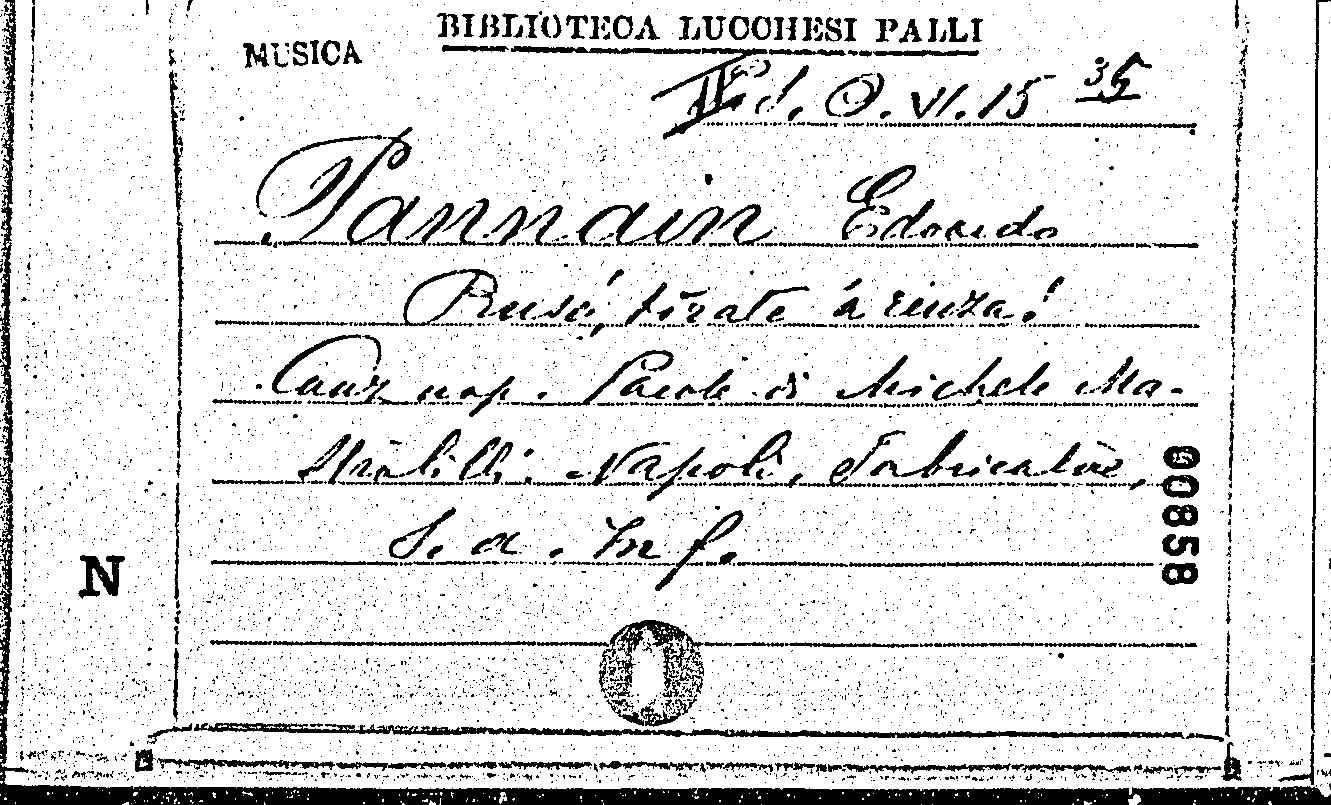 BIBLIOTECA LUCCHESI PALLI
MUSICA
d. O. VI. 15 35
Pannain Edoardo
Rusé, tirate 'a renza!
Canz nap. Parole di Michele Ma-
Napoli, Fabricatore,
S. a. In f.
00858
N